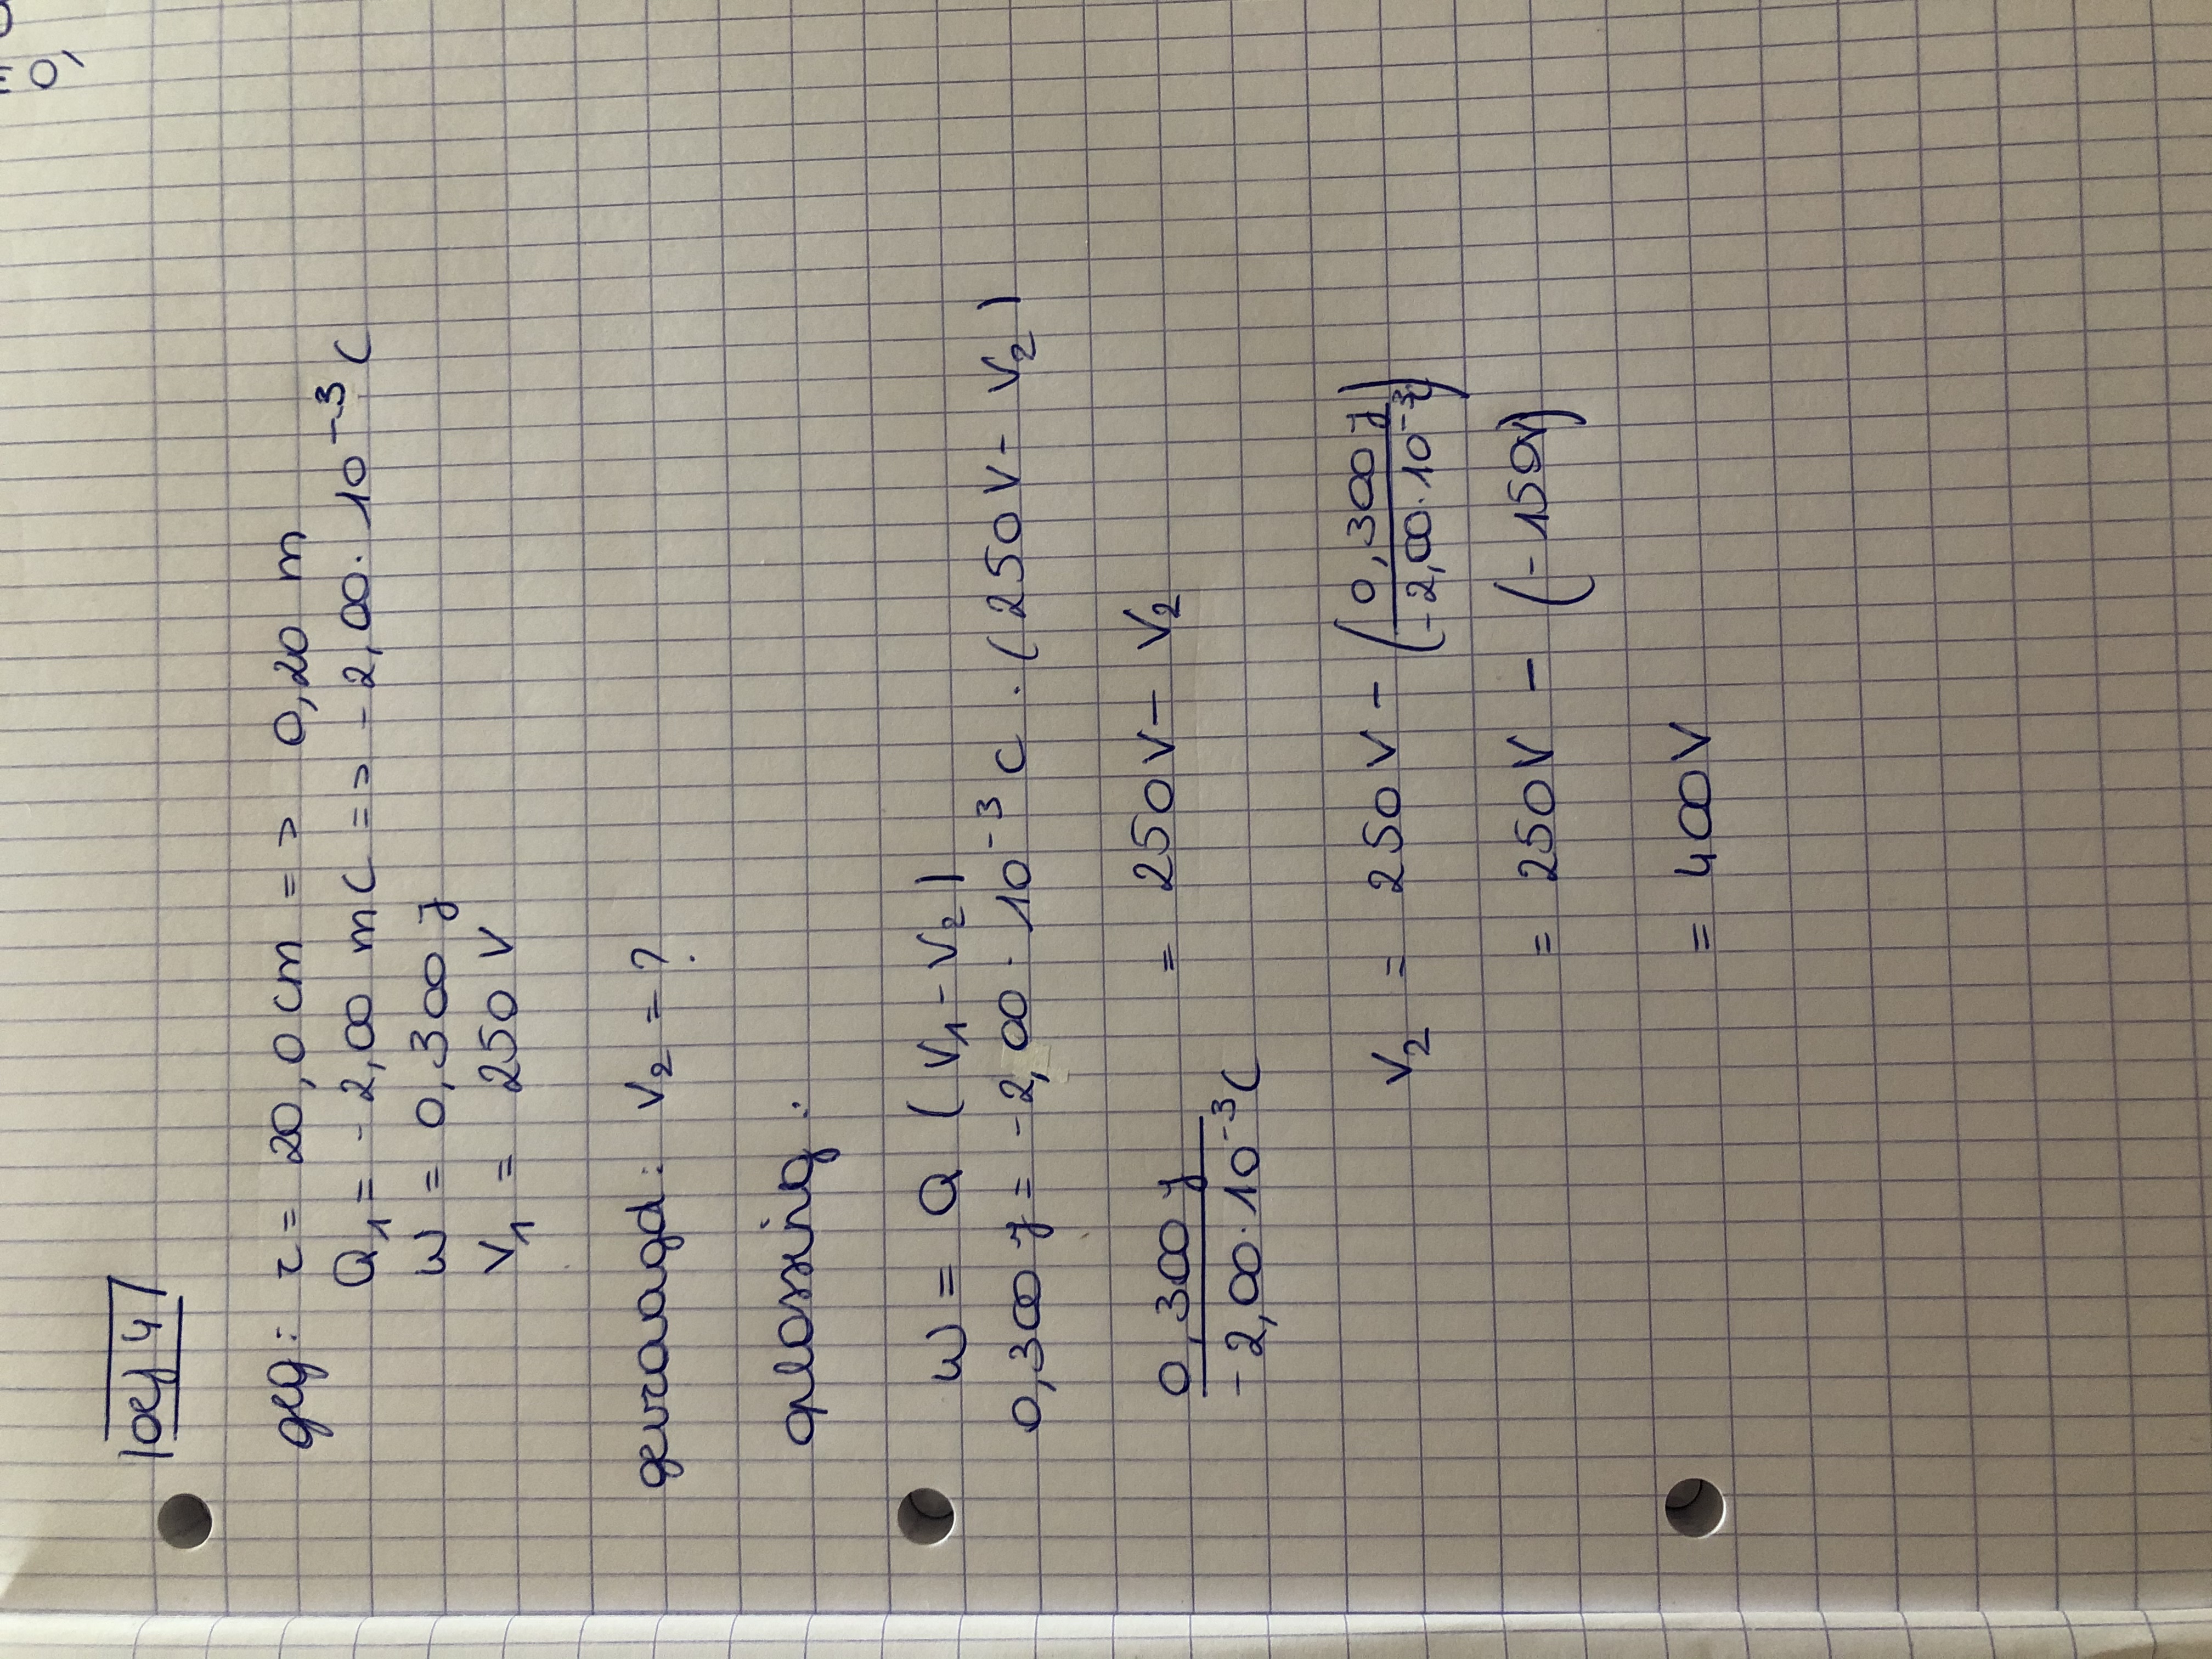 oef 4
geg: r = 20,0 cm => 0,20 m
Q₁ = - 2,00 mC => - 2,00 · 10⁻³ C
W = 0,300 J
V₁ = 250 V
gevraagd: V₂ = ?
oplossing:
W = Q (V₁ - V₂)
0,300 J = - 2,00 · 10⁻³ C · (250 V - V₂)
0,300 J / - 2,00 · 10⁻³ C = 250 V - V₂
V₂ = 250 V - (0,300 J / - 2,00 · 10⁻³)
= 250 V - (- 150V)
= 400 V